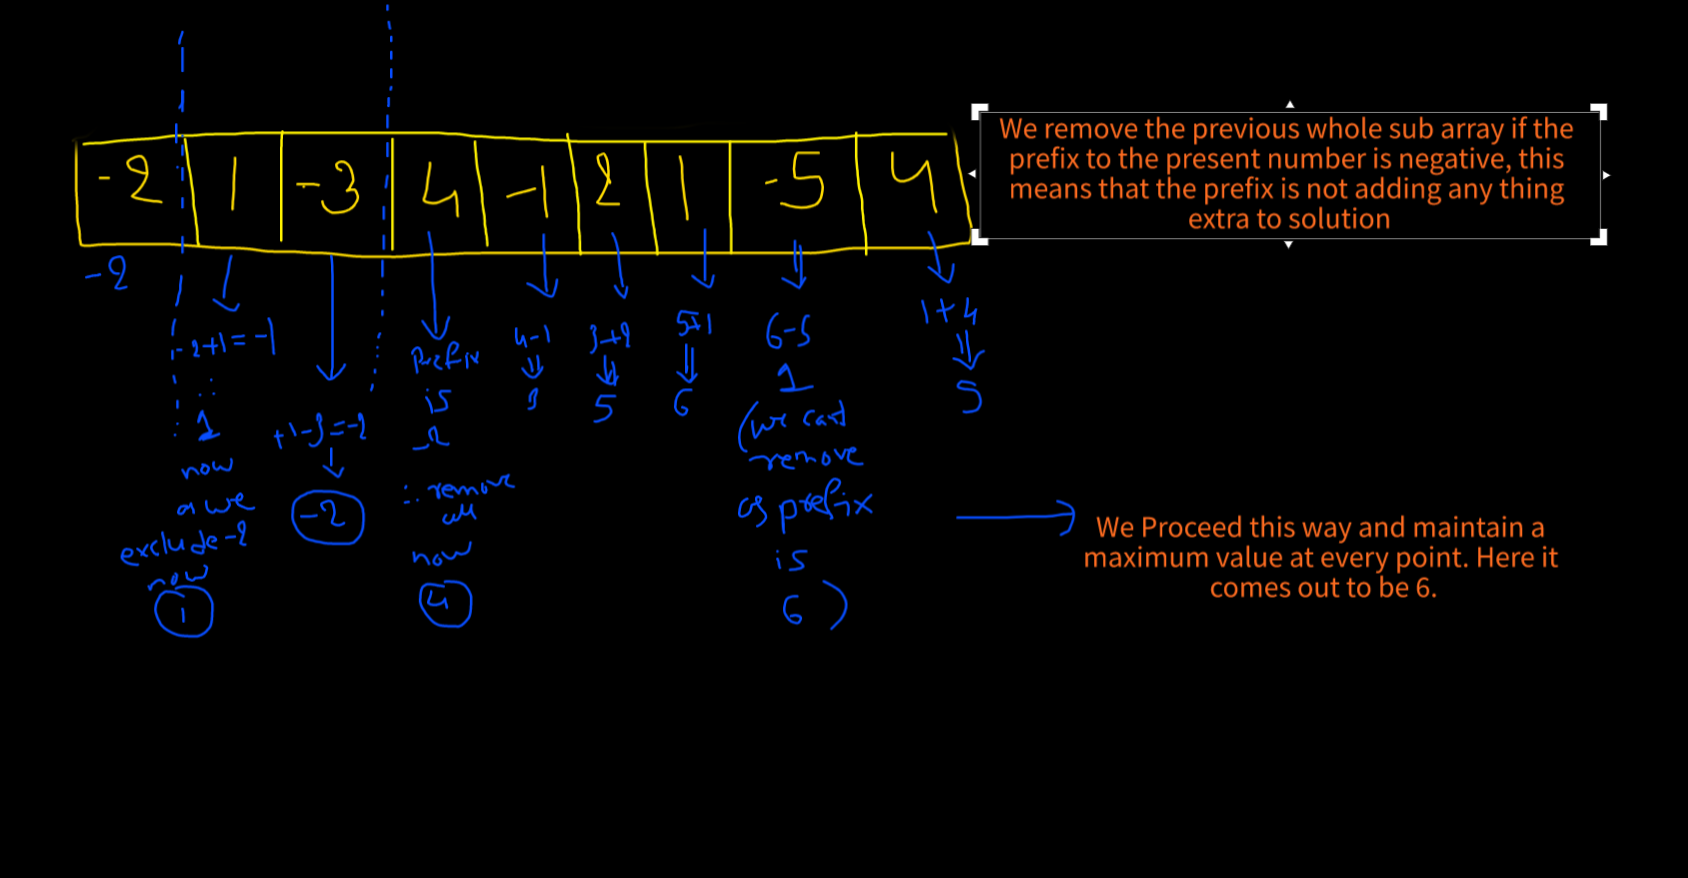 -2 1 -3 4 -1 2 1 -5 4
We remove the previous whole sub array if the
prefix to the present number is negative, this
means that the prefix is not adding any thing
extra to solution
-2
-2+1=-1
∴
1
now
as we
exclude -2
now
1
+1-3=-2
-2
Prefix
is
-2
∴ remove
all
now
4
4-1
3
3+2
5
5+1
6
6-5
1
(we cant
remove
as prefix
is
6)
1+4
5
We Proceed this way and maintain a
maximum value at every point. Here it
comes out to be 6.